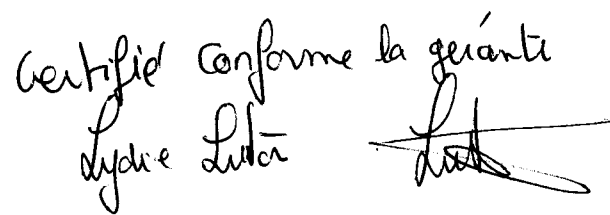 Certifié conforme la gérante
Lydie